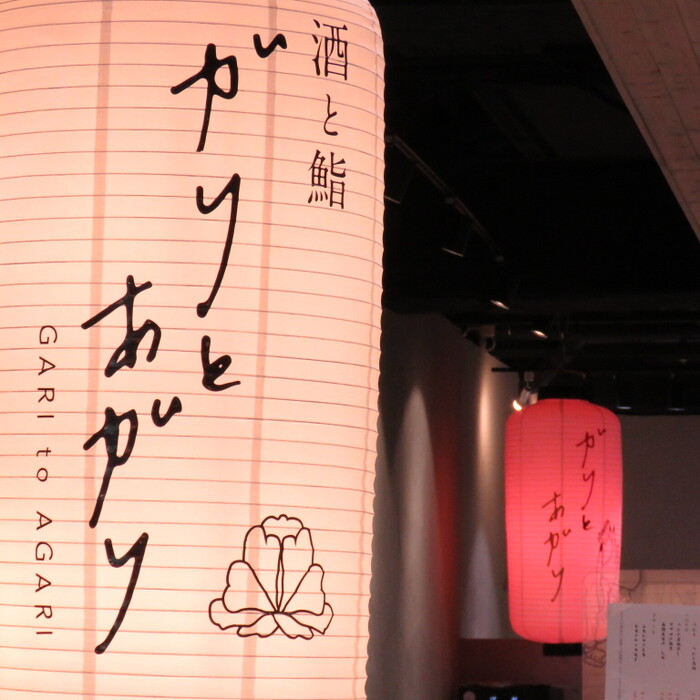 酒と鮨
がりと
あがり
GARI to AGARI
がりと
あがり